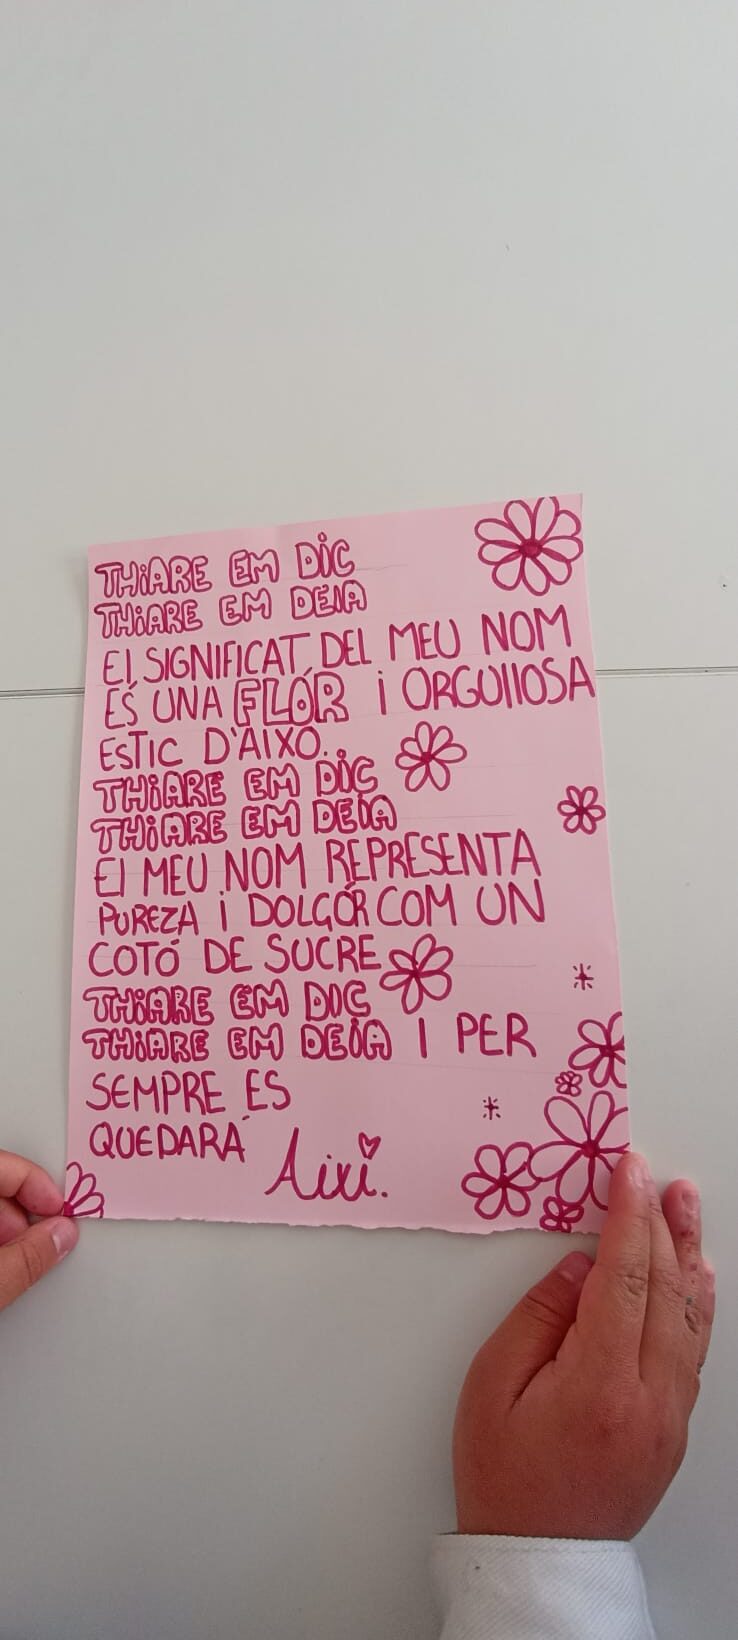 THiARE EM DiC
THiARE EM DEIA
El SIGNIFICAT DEL MEU NOM
ÉS UNA FLÓR i ORGUllOSA
ESTIC D'AIXO.
THiARE EM DiC
THiARE EM DEIA
El MEU NOM REPRESENTA
PUREZA i DOLÇÓR COM UN
COTÓ DE SUCRE
THiARE EM DIC
THiARE EM DEIA I PER
SEMPRE ES
QUEDARÁ Aixi.